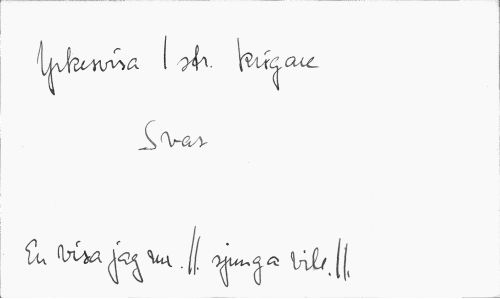 Yrkesvisa 1 str. krigare
Svar
En visa jag nu .//. sjunga vill .//.